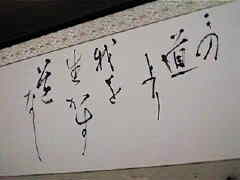 この
道
より
我を
生かす
道
なし